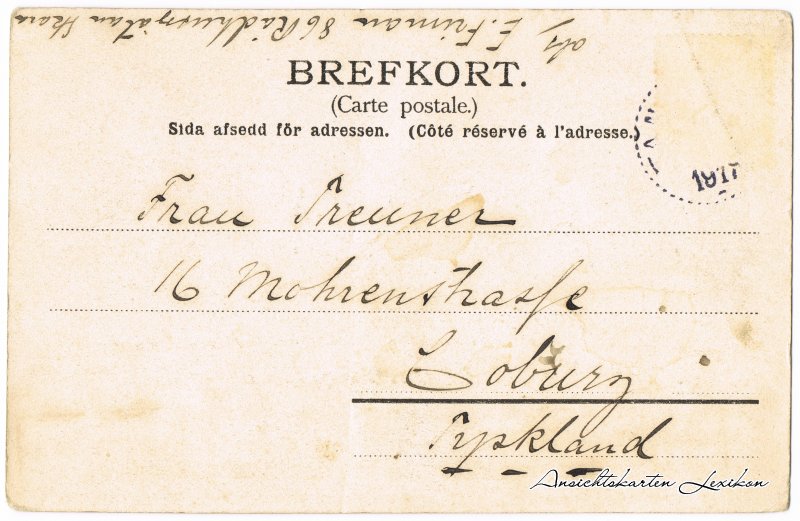 afs E. Friman 86 Rådhusgatan Skara
BREFKORT.
(Carte postale.)
Sida afsedd för adressen. (Côté réservé à l'adresse.
1917
Frau Preuner
16 Mohrenstrasse
Coburg
Tyskland
Ansichtskarten Lexikon